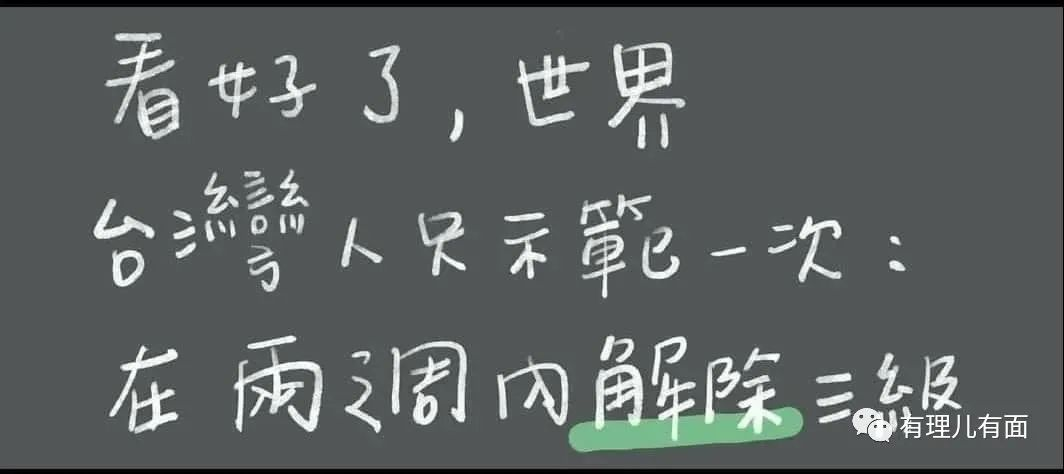 看好了,世界
台灣人只示範一次:
在兩週內解除三級
有理儿有面